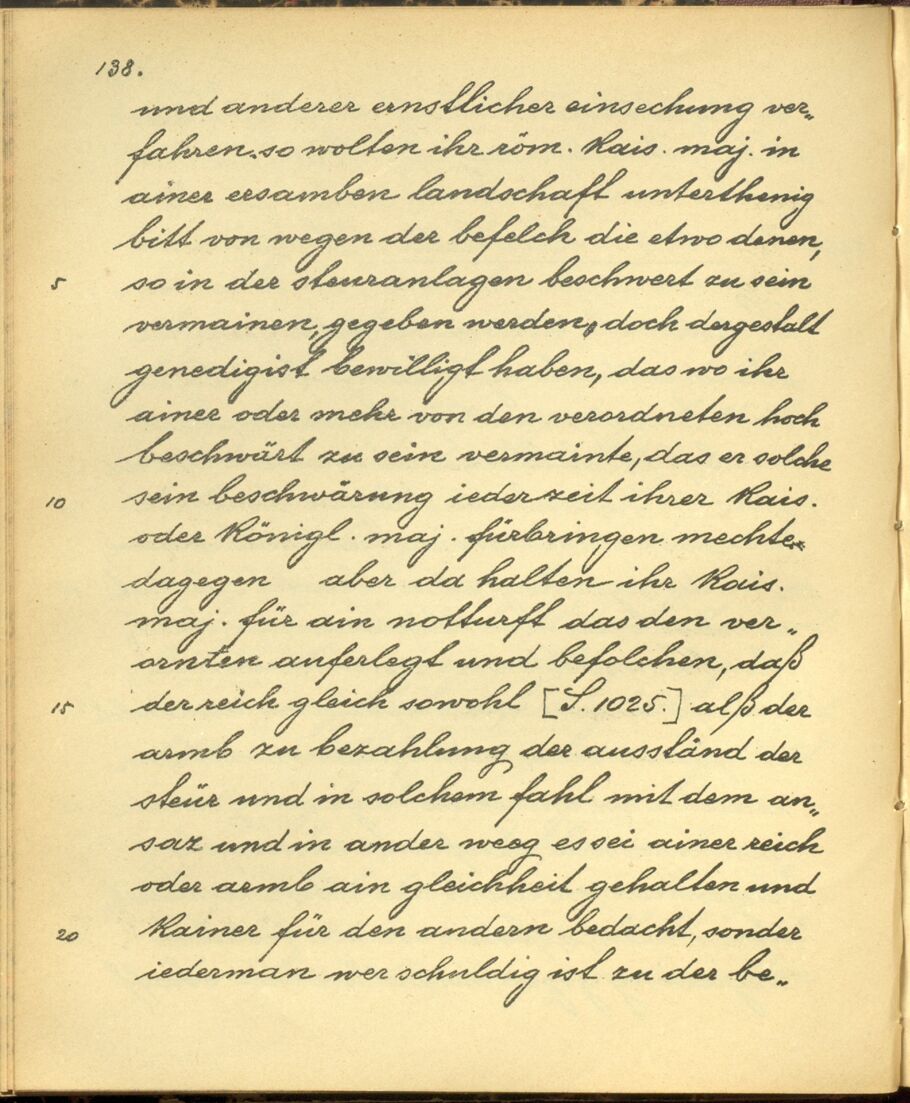 138.
und anderer ernstlicher einsechung ver„
fahren. so wolten ihr röm. Kais. maj. in
ainer ersamben landschaft unterthenig
bitt von wegen der befelch die etwo denen,
5 so in der steuranlagen beschwert zu sein
vermainen, gegeben werden, doch dergestalt
genedigist bewilligt haben, das wo ihr
ainer oder mehr von den verordneten hoch
beschwärt zu sein vermainte, das er solche
10 sein beschwärung iederzeit ihrer Kais.
oder Königl. maj. fürbringen mechte
dagegen aber da halten ihr Kais.
maj. für ain notturft das den ver„
ornten auferlegt und befolchen, daß
15 der reich gleich sowohl [S. 1025.] alß der
armb zu bezahlung derausständ der
steür und in solchem fahl mit dem an„
saz und in ander weeg es sei ainer reich
oder armb ain gleichheit gehalten und
20 Kainer für den andern bedacht, sonder
iederman wer schuldig ist zu der be„